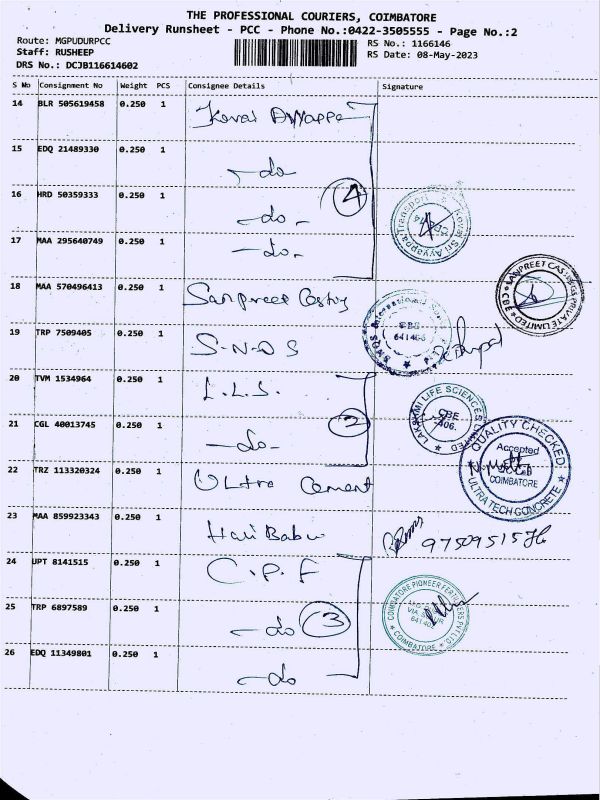 THE PROFESSIONAL COURIERS, COIMBATORE
Delivery Runsheet - PCC - Phone No.:0422-3505555 - Page No.:2
Route: MGPUDURPCC
RS No.: 1166146
Staff: RUSHEEP
RS Date: 08-May-2023
DRS No.: DCJB116614602
S No Consignment No Weight PCS Consignee Details Signature
14 BLR 505619458 0.250 1 Kovai Ayyappa
15 EDQ 21489330 0.250 1 -do-
4
16 HRD 50359333 0.250 1 -do-
17 MAA 295640749 0.250 1 -do-
Kovai Sri Ayyappa Transport
18 MAA 570496413 0.250 1 Sanpreet Casting
SANPREET CASTINGS PRIVATE LIMITED CBE
19 TRP 7509405 0.250 1 S-N-Q S
SNQS International CBE
20 TVM 1534964 0.250 1 L.L.S.
2
LAKSHMI LIFE SCIENCES LIMITED
CBE
21 CGL 40013745 0.250 1 -do-
22 TRZ 113320324 0.250 1 Ultra Cement
QUALITY CHECKED
Accepted
COIMBATORE
ULTRATECH CONCRETE
23 MAA 859923343 0.250 1 Hari Babu
24 UPT 8141515 0.250 1 C.P.F
3
25 TRP 6897589 0.250 1 -do
COIMBATORE PIONEER FERTILISERS PVT LTD
COIMBATORE
26 EDQ 11349801 0.250 1 -do